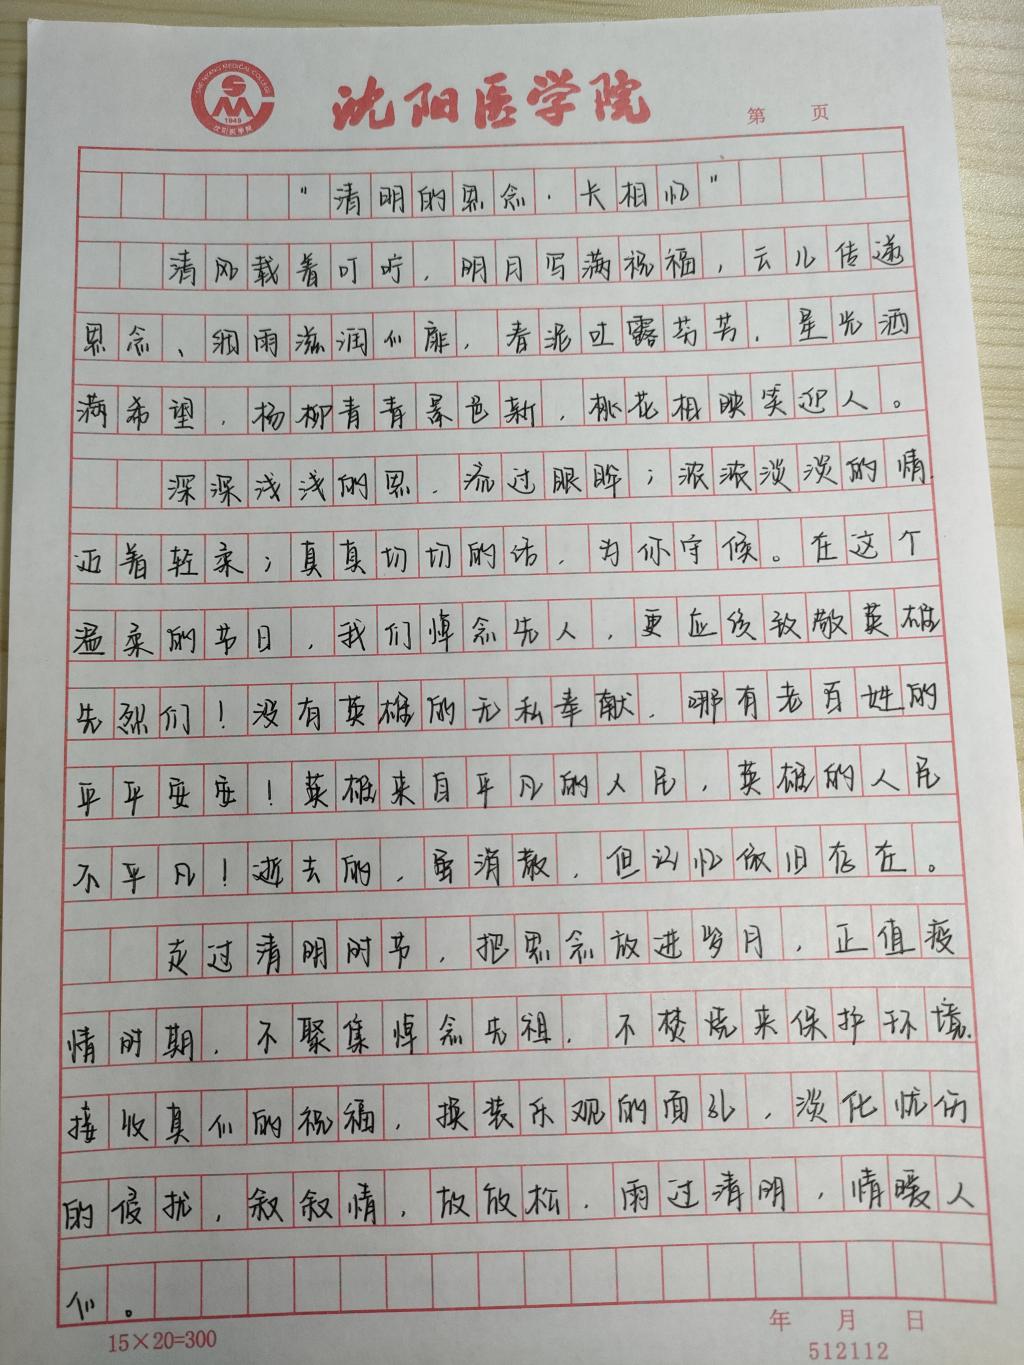 SHENYANG MEDICAL COLLEGE
1949
沈阳医学院
沈阳医学院
第 页
"清明的思念·长相忆"
清风载着叮咛，明月写满祝福，云儿传递
思念、细雨滋润心扉，春泥过露芬芳．星光洒
满希望，杨柳青青景色新，桃花相映笑迎人。
深深浅浅的思．流过眼眸；浓浓淡淡的情．
迈着轻柔；真真切切的话．为你守候。在这个
温柔的节日，我们悼念先人，更应该致敬英雄
先烈们！没有英雄的无私奉献．哪有老百姓的
平平安安！英雄来自平凡的人民，英雄的人民
不平凡！逝去的，虽消散，但记忆依旧存在。
走过清明时节，把思念放进岁月，正值疫
情时期．不聚集悼念先祖．不焚烧来保护环境．
接收真心的祝福，换装乐观的面孔，淡化忧伤
的侵扰，叙叙情，放放松．雨过清明，情暖人
心。
15×20=300
年 月 日
512112